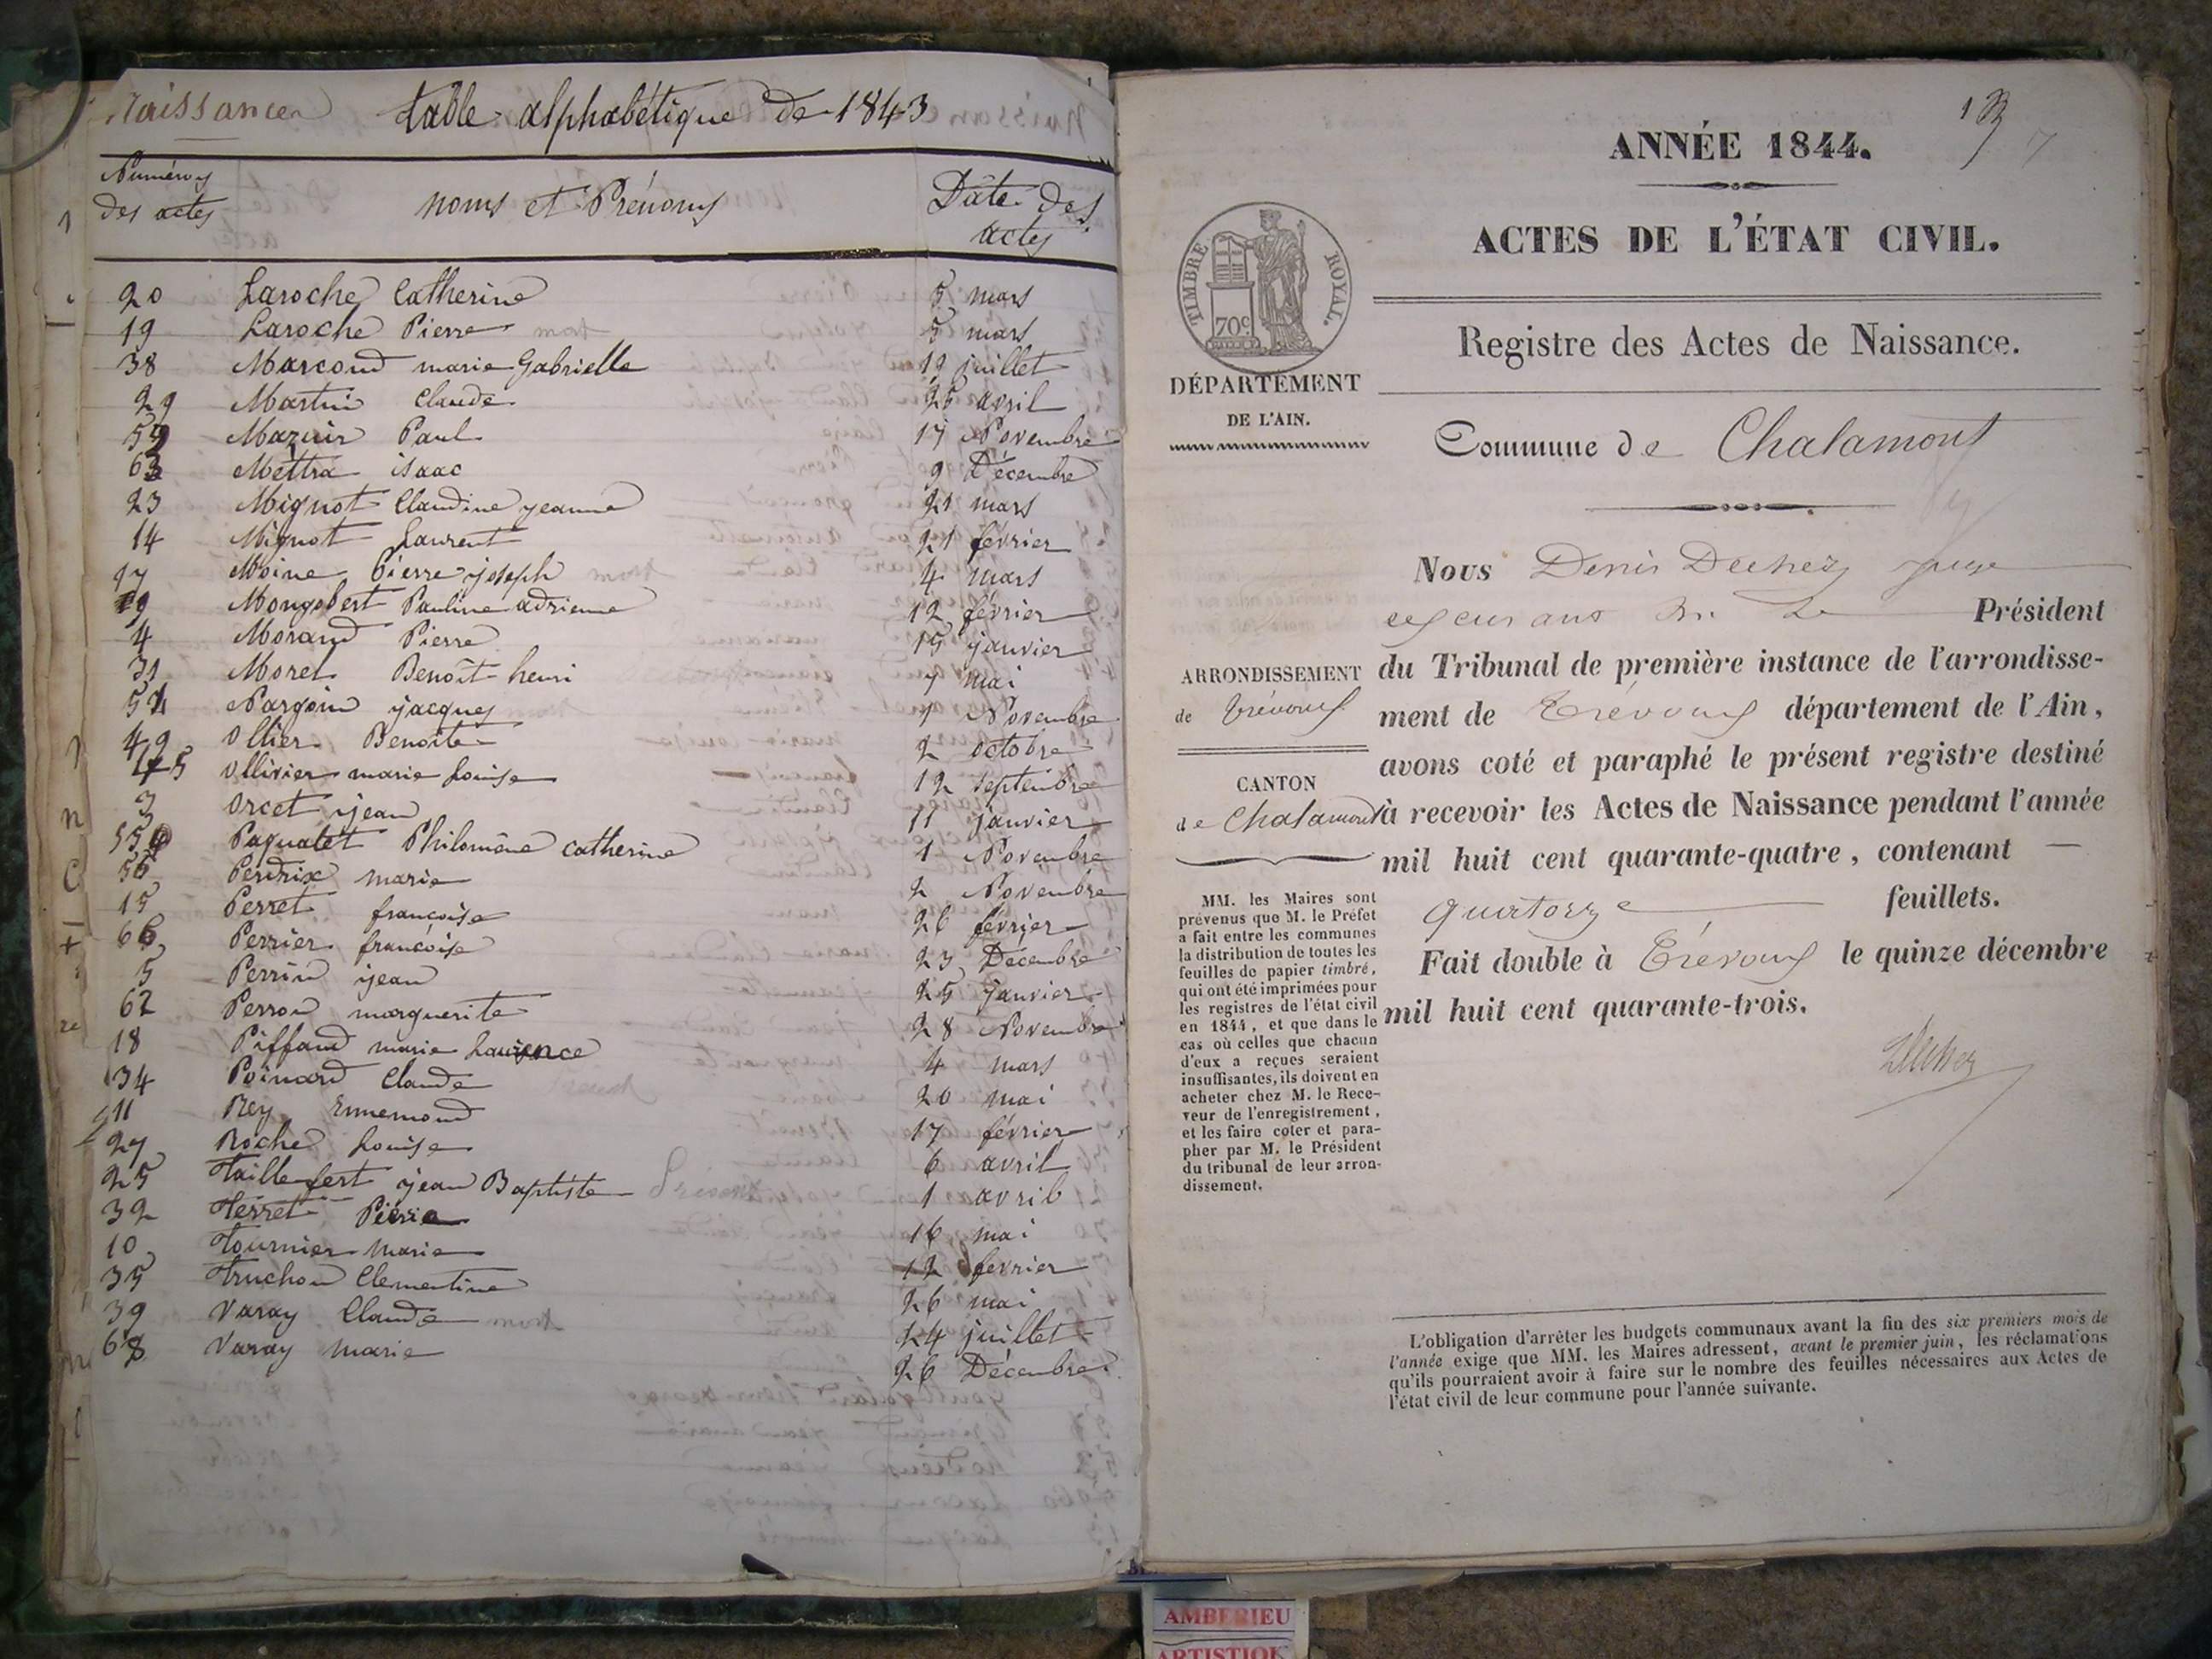 Naissances table alphabétique de 1843
Numéros des actes
noms et Prénoms
Date des actes
20 Laroche Catherine 5 mars
19 Laroche Pierre 5 mars
38 Marcond marie Gabrielle 19 juillet
29 Martin Claude 26 avril
59 Mazuir Paul 17 Novembre
63 Mettra isaac 9 Décembre
23 Mignot Claudine jeanne 21 mars
14 Mignot Laurent 21 février
17 Moine Pierre joseph 4 mars
9 Mongobert Pauline adrienne 12 février
4 Morand Pierre 15 janvier
31 Morel Benoît henri 7 mai
54 Nargoin jacques 7 Novembre
49 Ollier Benoîte 2 octobre
45 Ollivier marie Louise 12 septembre
3 Orcet jean 11 janvier
55 Paquatet Philomène catherine 1 Novembre
56 Perdrix marie 2 Novembre
15 Perret françoise 26 février
66 Perrier françoise 23 Décembre
5 Perrin jean 25 janvier
62 Perron marguerite 28 Novembre
18 Piffaud marie Laurence 4 mars
34 Poinard Claude 20 mai
11 Rey Ennemond 17 février
27 Roche Louise 6 avril
25 Taillefert jean Baptiste 1 avril
32 Terret Pierre 16 mai
10 Tournier Marie 12 février
35 Truchon Clementine 26 mai
39 Varay Claude 24 juillet
68 Varay marie 26 Décembre
ANNÉE 1844.
ACTES DE L'ÉTAT CIVIL.
TIMBRE ROYAL.
70c
Registre des Actes de Naissance.
DÉPARTEMENT
DE L'AIN.
Commune de Chalamont
Nous Denis Dechez juge
Président
ARRONDISSEMENT
de Trévoux
du Tribunal de première instance de l'arrondisse-
ment de Trévoux département de l'Ain,
avons coté et paraphé le présent registre destiné
CANTON
de Chalamont
à recevoir les Actes de Naissance pendant l'année
mil huit cent quarante-quatre, contenant —
quatorze feuillets.
Fait double à Trévoux le quinze décembre
mil huit cent quarante-trois.
Dechez
MM. les Maires sont
prévenus que M. le Préfet
a fait entre les communes
la distribution de toutes les
feuilles de papier timbré,
qui ont été imprimées pour
les registres de l'état civil
en 1844, et que dans le
cas où celles que chacun
d'eux a reçues seraient
insuffisantes, ils doivent en
acheter chez M. le Rece-
veur de l'enregistrement,
et les faire coter et para-
pher par M. le Président
du tribunal de leur arron-
dissement.
L'obligation d'arrêter les budgets communaux avant la fin des six premiers mois de
l'année exige que MM. les Maires adressent, avant le premier juin, les réclamations
qu'ils pourraient avoir à faire sur le nombre des feuilles nécessaires aux Actes de
l'état civil de leur commune pour l'année suivante.
AMBERIEU